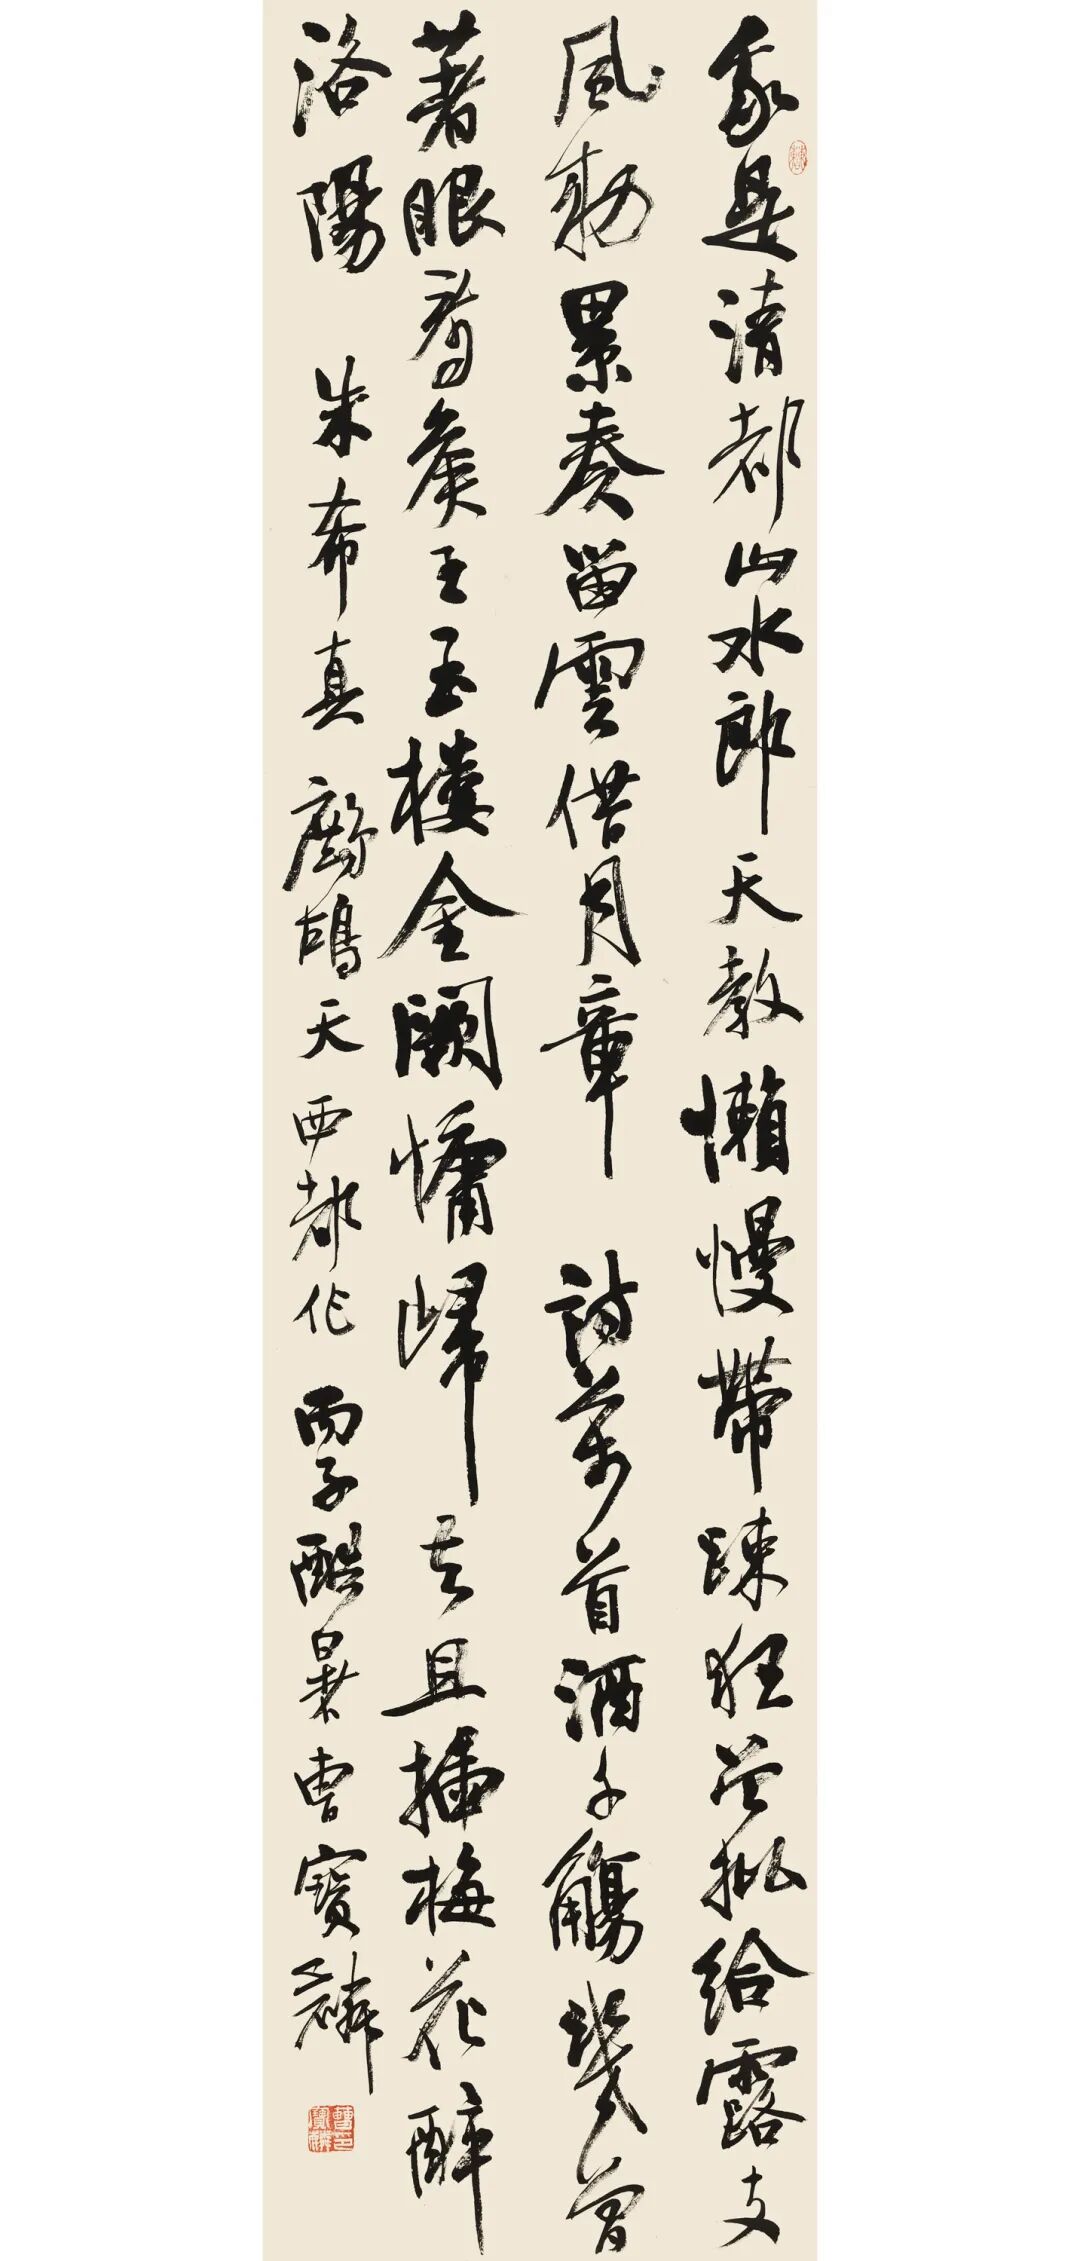 我是清都山水郎天教懶慢帶踈狂曾批給露支
風勑累奏留雲借月章 詩萬首酒千觴幾曾
著眼看矦王玉樓金闕慵歸去且插梅花醉
洛陽 朱希真 鷓鴣天 西都作 丙子酷 曹寶麟
曹印寶麟